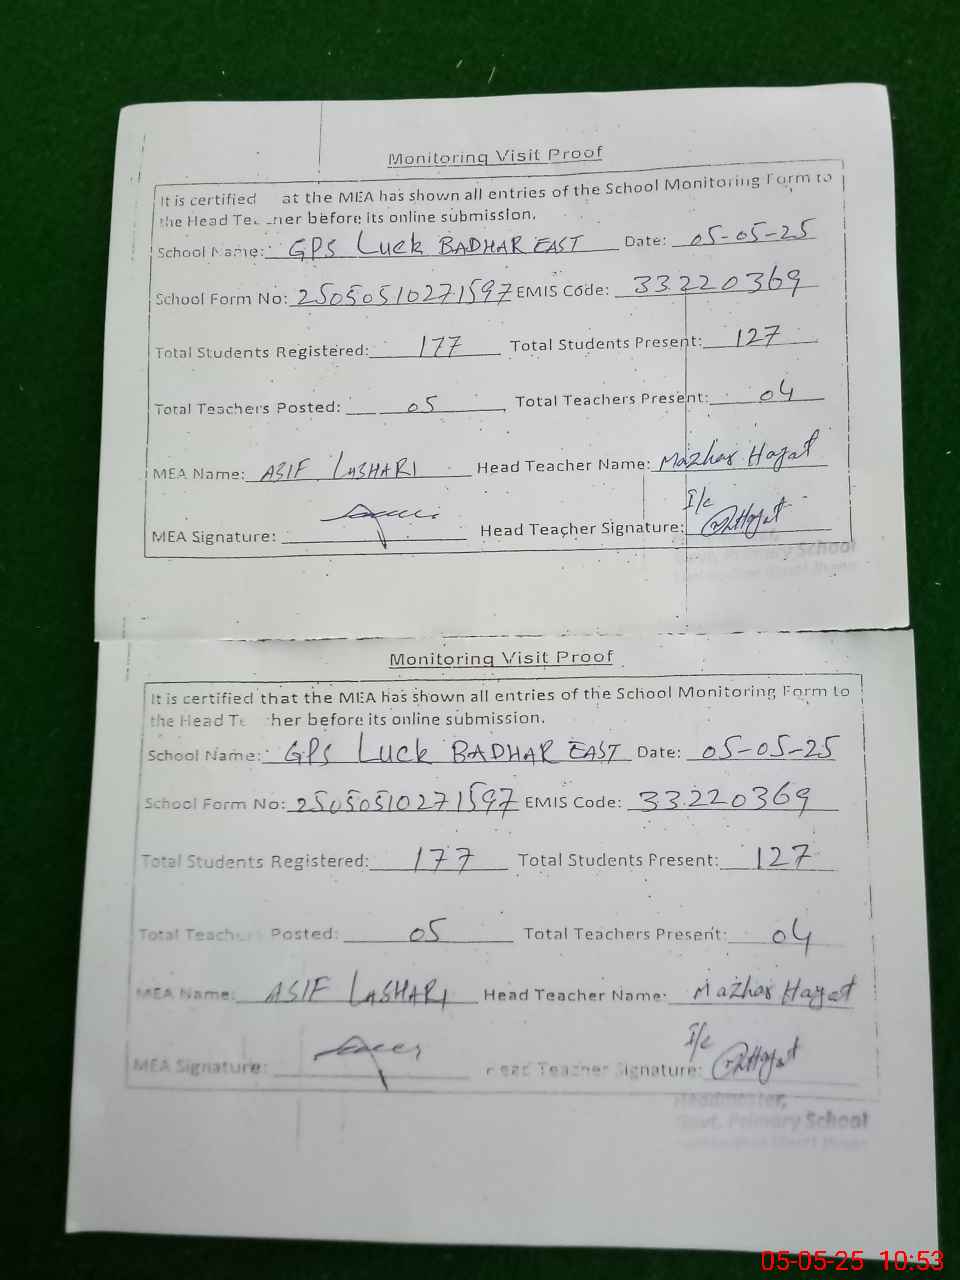 Monitoring Visit Proof
It is certified at the MEA has shown all entries of the School Monitoring Form to
the Head Te ner before its online submission.
School Name: GPS Luck BADHAR EAST Date: 05-05-25
School Form No: 25050510271597 EMIS Code: 33220369
Total Students Registered: 177 Total Students Present: 127
Total Teachers Posted: 05 Total Teachers Present: 04
MEA Name: ASIF LASHARI Head Teacher Name: Mazhar Hayat
I/c
MEA Signature: Head Teacher Signature: Hayat
Primary School
Monitoring Visit Proof
It is certified that the MEA has shown all entries of the School Monitoring Form to
the Head Te her before its online submission.
School Name: GPS Luck BADHAR EAST Date: 05-05-25
School Form No: 25050510271597 EMIS Code: 33220369
Total Students Registered: 177 Total Students Present: 127
Total Teachers Posted: 05 Total Teachers Present: 04
MEA Name: ASIF LASHARI Head Teacher Name: Mazhar Hayat
I/c
MEA Signature: Head Teacher Signature: Hayat
Headmaster,
Govt. Primary School
05-05-25 10:53